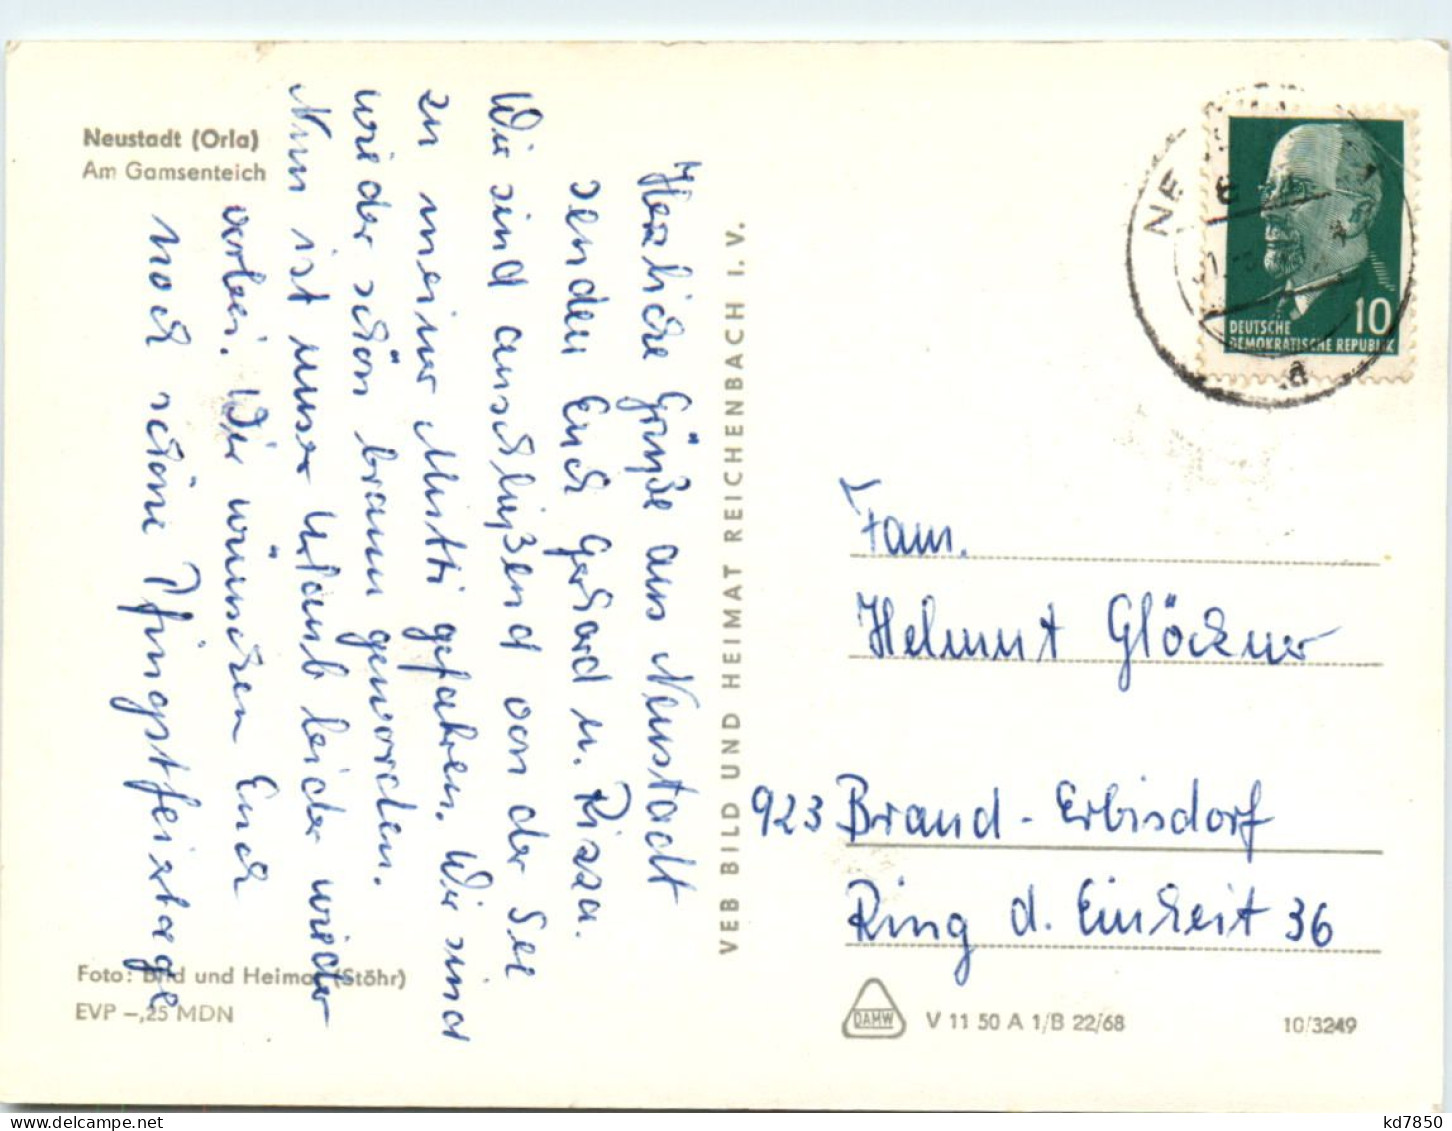 Neustadt (Orla)
Am Gamsenteich
Herzliche Grüße aus Neustadt
senden Euch Gerhard u.
Wir sind anschließend von der See
zu meiner Mutti gefahren. Wir sind
wieder schön braun geworden.
Nun ist unser Urlaub leider wieder
vorbei. Wir wünschen Euch
noch schöne Pfingstfeiertage
Foto: Bild und Heimat (Stöhr)
EVP –,25 MDN
VEB BILD UND HEIMAT REICHENBACH I. V.
DEUTSCHE
DEMOKRATISCHE REPUBLIK
10
NE
a
Fam.
Helmut Glöckner
923 Brand-Erbisdorf
Ring d. Einheit 36
DAMW
V 11 50 A 1/B 22/68
10/3249
kd7850